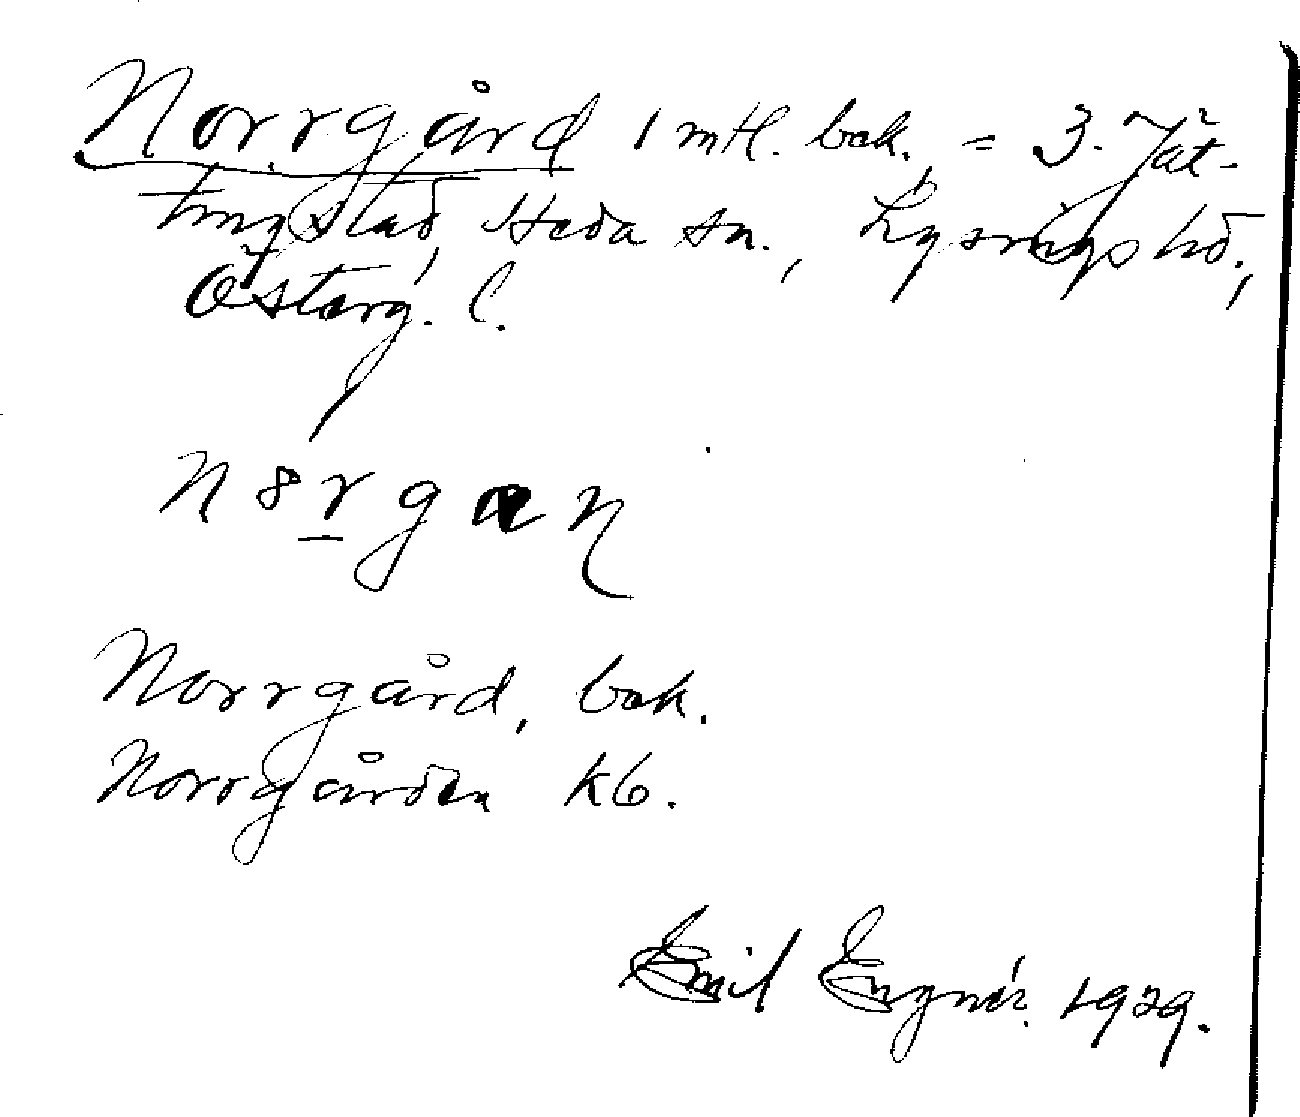 Norrgård 1 mtl. bok. = 3. Jät-
tingstad, Heda sn., Lysings hd.,
Österg. l.
Norrgård, bok.
Norrgården kb.
Emil Engnér. 1929.